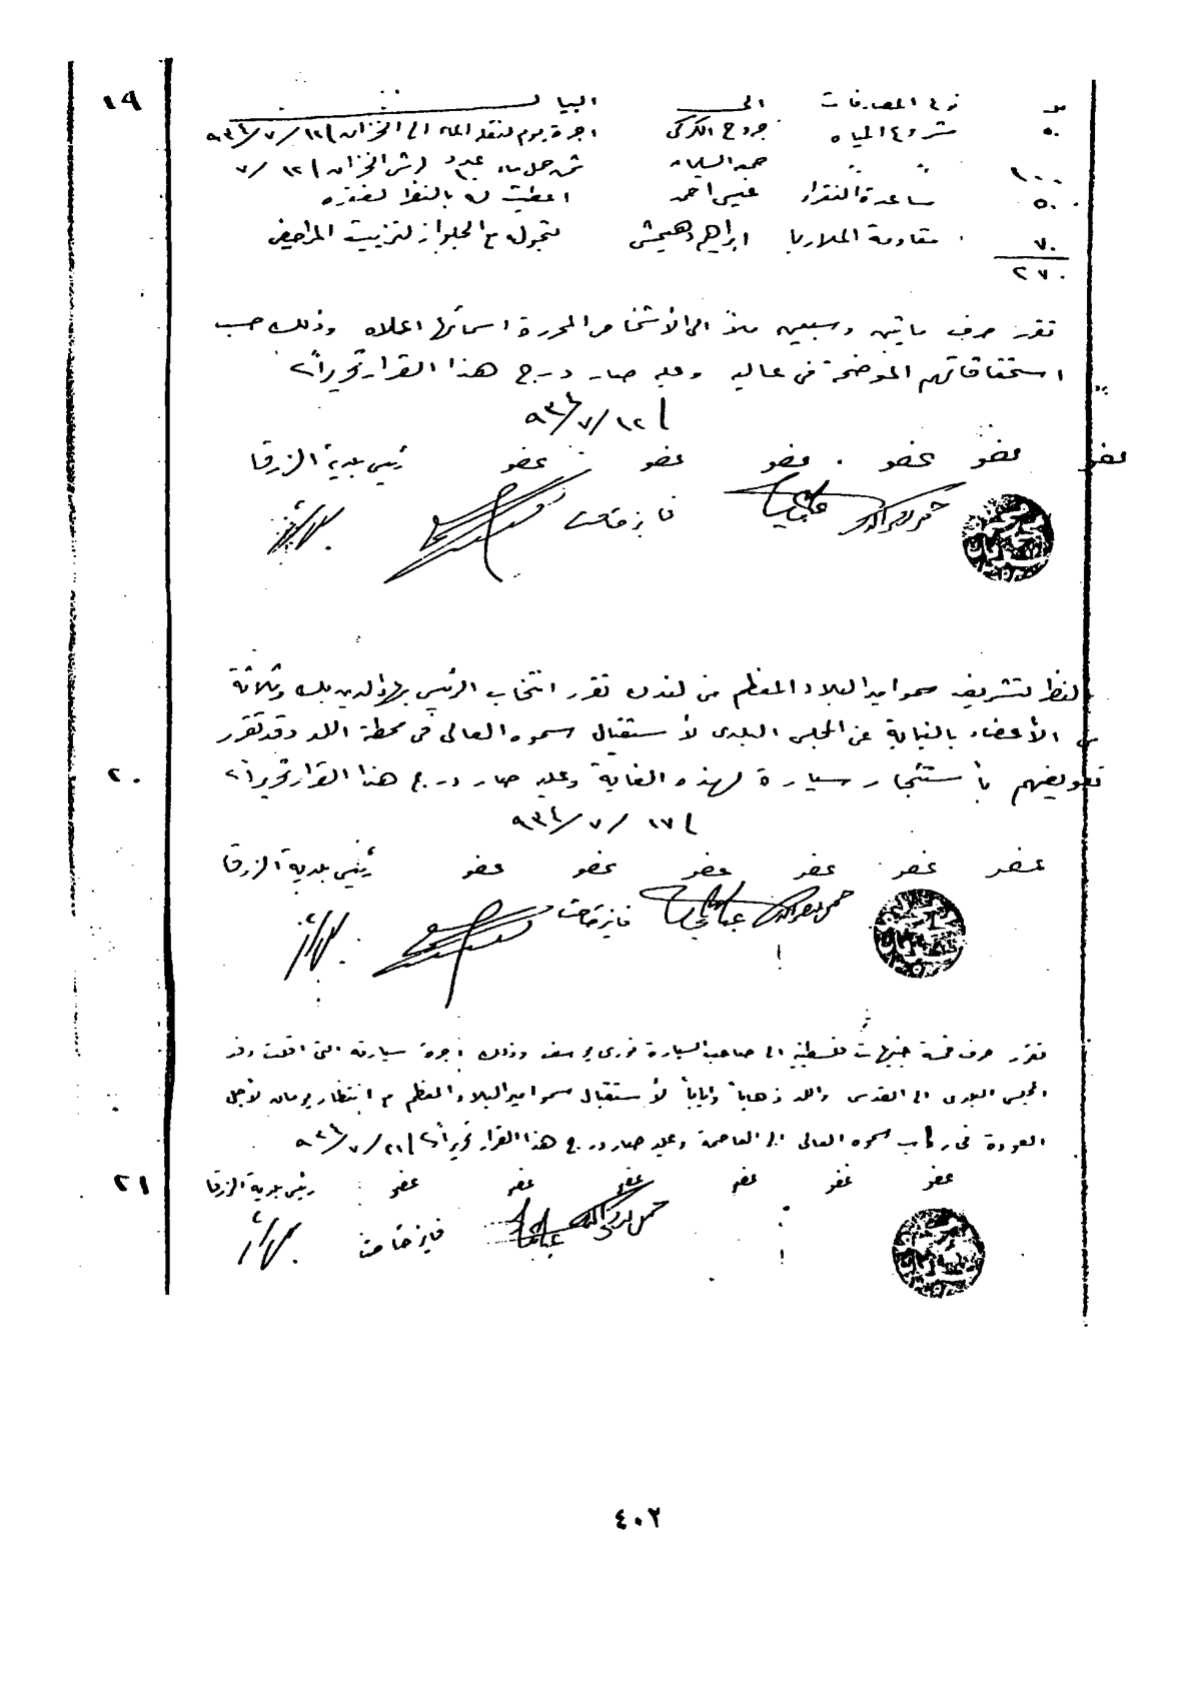 ١٩
مل نوع المصارفات الى البيان
٥٠ مشروع المياه جروح الكركي اجرة يوم لنقل الماء الى الخزان ١٢/٧/٩٣٤
١٠٠ " " حمد السلمان ثمن حمل ماء عدد لرش الخزان ١٢/٧
٥٠ مساعدة الفقراء عيسى احمد اعطيت له بالنظر لفقره
٧٠ مقاومة الملاريا ابراهيم دهيمش لتجوله مع الجلواز لتزييت المراحيض
٢٧٠
تقرر صرف مائتين وسبعين ملاً الى الأشخاص المحررة اسمائها اعلاه وذلك حسب
استحقاقاتهم الموضحة في عاليه وعليه صار درج هذا القرار تحريراً في
١٢/٧/٩٣٤
عضو عضو عضو عضو عضو عضو رئيس بلدية الزرقا
فايز خاطر
بالنظر لتشريف سمو امير البلاد المعظم من لندن تقرر انتخاب الرئيس بهاء الدين بك وثلاثة
من الأعضاء بالنيابة عن المجلس البلدي لأستقبال سموه العالي في محطة اللد وقد تقرر
تفويضهم بأستئجار سيارة لهذه الغاية وعليه صار درج هذا القرار تحريراً في
٢٠
١٧/٧/٩٣٤
عضو عضو عضو عضو عضو عضو رئيس بلدية الزرقا
تقرر صرف خمسة جنيهات فلسطينية الى صاحب السيارة فوزي يوسف وذلك اجرة سيارته التي اقلت وفد
المجلس البلدي الى القدس واللد ذهاباً واياباً لأستقبال سمو امير البلاد المعظم مع انتظار يومان لأجل
العودة في ركاب سموه العالي الى العاصمة وعليه صار درج هذا القرار تحريراً في ٢١/٧/٩٣٤
٢١
عضو عضو عضو عضو عضو عضو رئيس بلدية الزرقا
٤٠٢